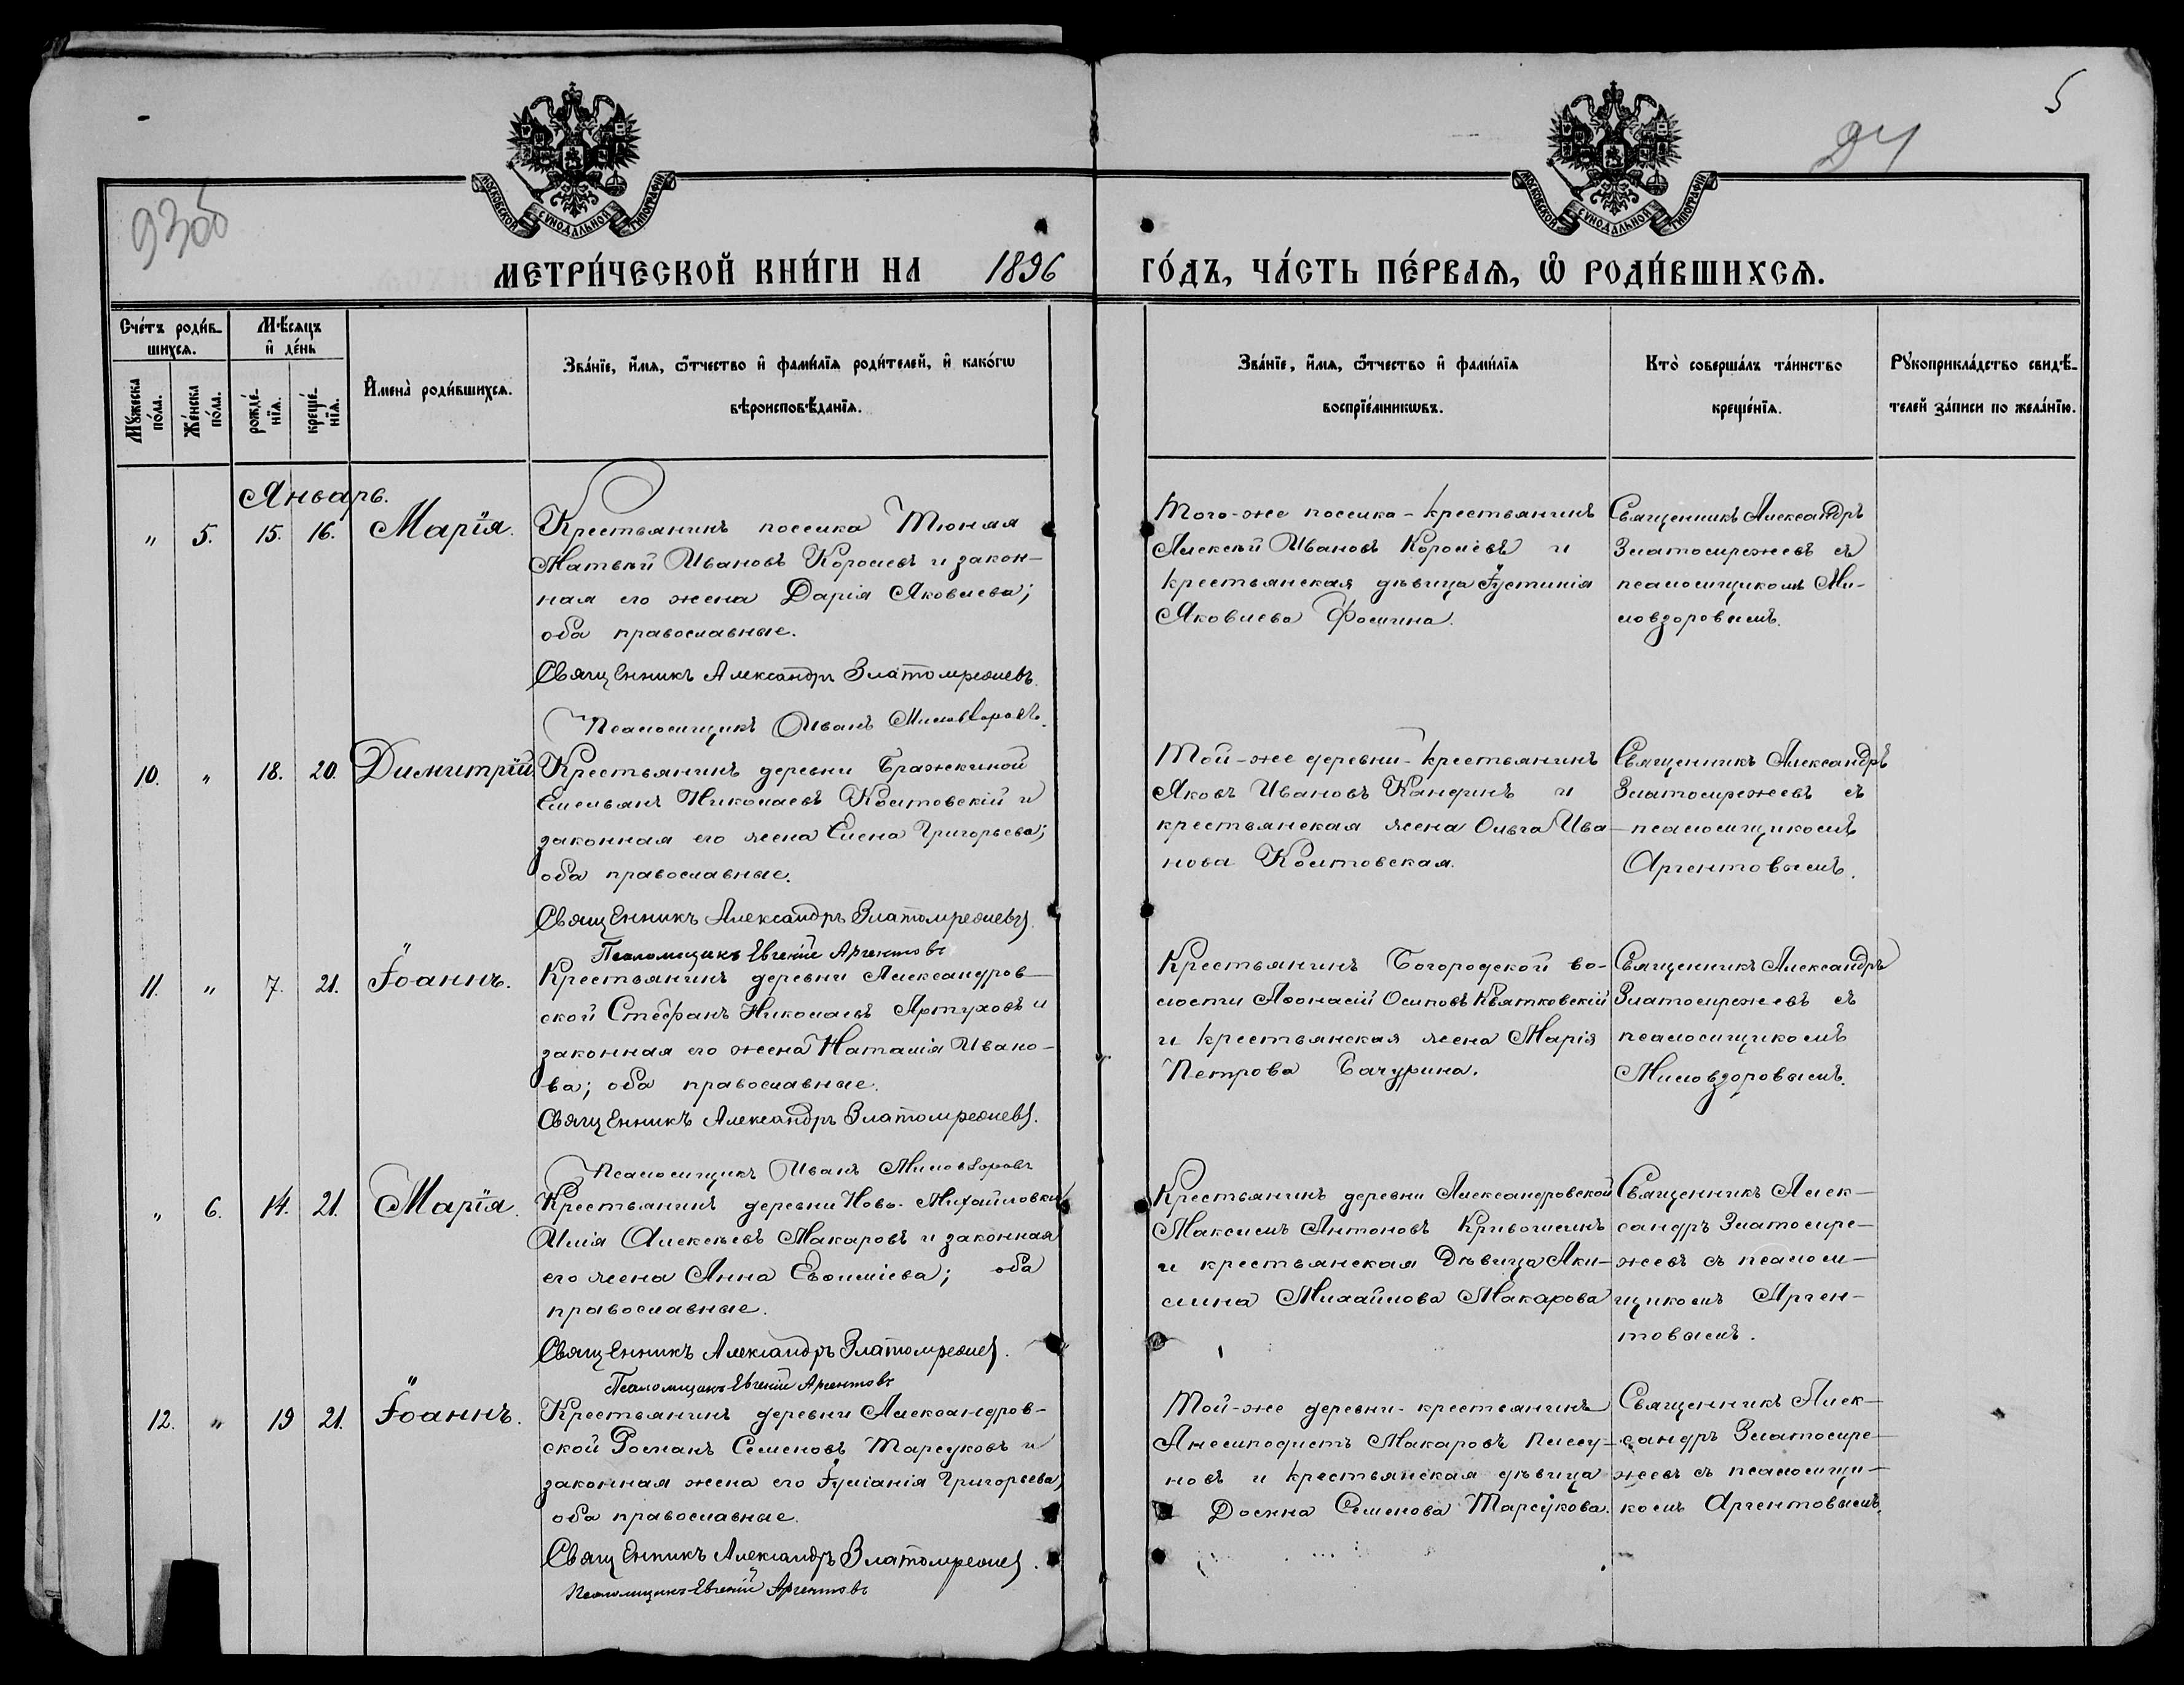 5
24
930об
МОСКОВСКОЙ СѴНОДАЛЬНОЙ ТИПОГРАФІИ
МОСКОВСКОЙ СѴНОДАЛЬНОЙ ТИПОГРАФІИ
МЕТРИ́ЧЕСКОЙ КНИ́ГИ НА 1896 ГО́ДЪ, ЧА́СТЬ ПЕ́РВАѦ, Ѡ РОДИ́ВШИХСѦ.
Сче́тъ роди́в-
шихсѧ.
Мꙋ́жеска
по́ла.
Же́нска
по́ла.
Мѣ́сѧцъ
и де́нь
рожде́-
нїѧ.
креще́-
нїѧ.
Имена̀ роди́вшихсѧ.
Зва́нїе, и́мѧ, ѻ́тчество и фами́лїѧ роди́телей, и како́гѡ
вѣроисповѣ́данїѧ.
Зва́нїе, и́мѧ, ѻ́тчество и фами́лїѧ
воспрїе́мникѡвъ.
Кто̀ соверша́лъ та́инство
креще́нїѧ.
Рꙋкоприкла́дство свидѣ́-
телей за́писи по жела́нїю.
Январь.
" 5. 15. 16. Марія.
Крестьянинъ поселка Тюная
Матвѣй Ивановъ Королевъ и закон-
ная его жена Дарія Яковлева;
оба православные.
Священникъ Александръ Златомрежевъ.
Псаломщикъ Иванъ Миловзоровъ.
Того-же поселка - крестьянинъ
Алексѣй Ивановъ Королёвъ и
крестьянская дѣвица Іустинія
Яковлева Фомина.
Священникъ Александръ
Златомрежевъ съ
псаломщикомъ Ми-
ловзоровымъ.
10. " 18. 20. Димитрій.
Крестьянинъ деревни Бражкиной
Емельянъ Николаевъ Колтовскій и
законная его жена Елена Григорьева;
оба православные.
Священникъ Александръ Златомрежевъ.
Псаломщикъ Евгеній Аргентовъ
Той-же деревни - крестьянинъ
Яковъ Ивановъ Кандинъ и
крестьянская жена Ольга Ива-
нова Колтовская.
Священникъ Александръ
Златомрежевъ съ
псаломщикомъ
Аргентовымъ.
11. " 7. 21. Іоаннъ.
Крестьянинъ деревни Александров-
ской Стефанъ Николаевъ Артуховъ и
законная его жена Наталія Ивано-
ва; оба православные.
Священникъ Александръ Златомрежевъ.
Псаломщикъ Иванъ Миловзоровъ
Крестьянинъ Богородской во-
лости Аѳонасій Осиповъ Квятковскій
и крестьянская жена Марія
Петрова Бачурина.
Священникъ Александръ
Златомрежевъ съ
псаломщикомъ
Миловзоровымъ.
" 6. 14. 21. Марія.
Крестьянинъ деревни Ново-Михайловки
Илія Алексѣевъ Макаровъ и законная
его жена Анна Евѳиміева; оба
православные.
Священникъ Александръ Златомрежев.
Псаломщикъ Евгеній Аргентовъ
Крестьянинъ деревни Александровской
Максимъ Антоновъ Кривошеинъ
и крестьянская дѣвица Аки-
лина Михайлова Макарова
Священникъ Алек-
сандръ Златомре-
жевъ съ псалом-
щикомъ Арген-
товымъ.
12. " 19 21. Іоаннъ.
Крестьянинъ деревни Александров-
ской Романъ Семеновъ Тарсуковъ и
законная жена его Іуліанія Григорьева,
оба православные.
Священникъ Александръ Златомрежев.
Псаломщикъ Евгеній Аргентовъ
Той-же деревни - крестьянинъ
Анемподистъ Макаровъ
новъ и крестьянская дѣвица
Домна Семенова Тарсукова.
Священникъ Алек-
сандръ Златомре-
жевъ съ псаломщи-
комъ Аргентовымъ.